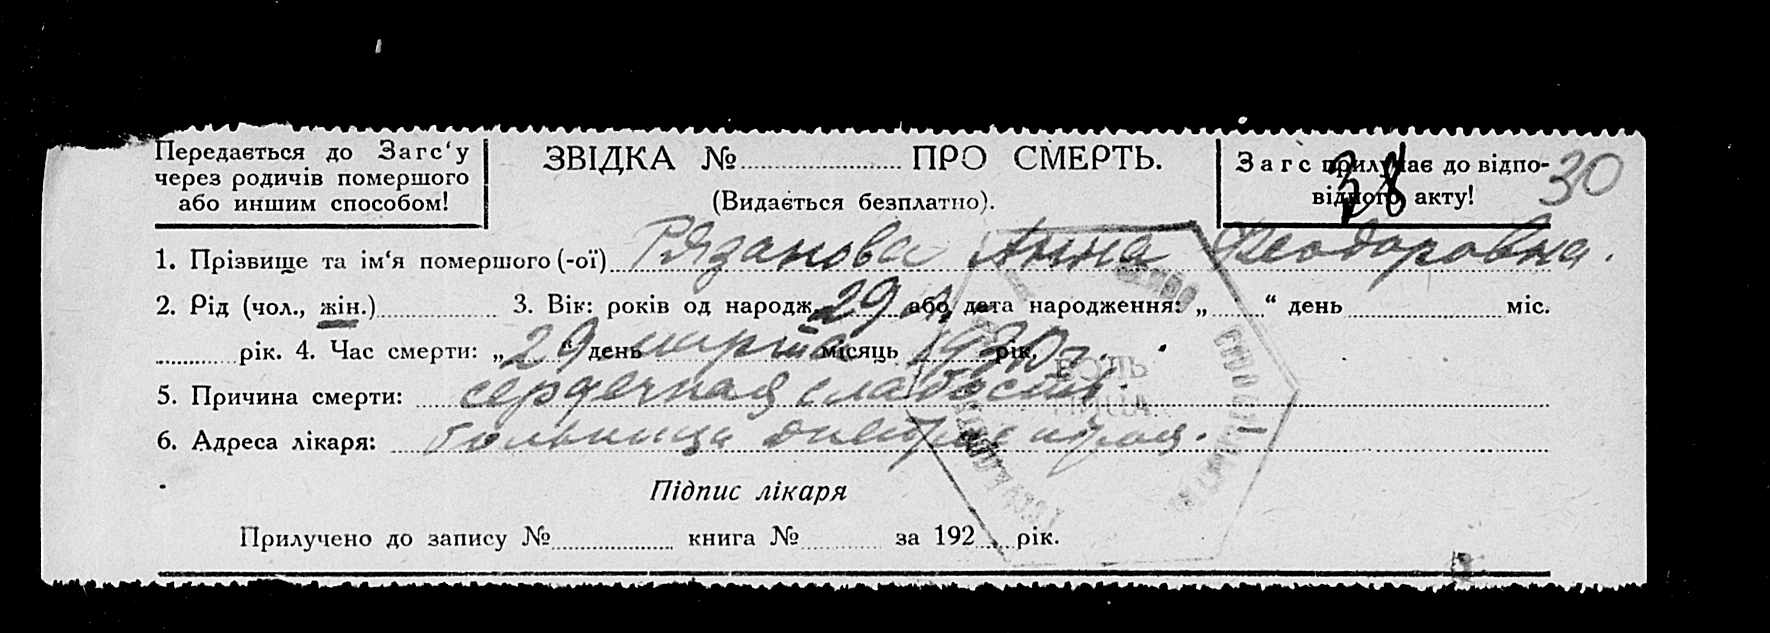 Передається до Загс‘у
через родичів помершого
або иншим способом!
ЗВІДКА № ПРО СМЕРТЬ.
(Видається безплатно).
Загс прилучає до відпо-
відного акту!
38
30
1. Прізвище та ім‘я помершого (-ої) Рязанова Анна Феодоровна.
2. Рід (чол., жін.) 3. Вік: років од народж. 29 л. або дата народження: „ “ день міс.
рік. 4. Час смерти: „ 29 “ день марта місяць 1930 г. рік.
5. Причина смерти: сердечная слабость.
6. Адреса лікаря: больница
БОЛЬ
НИЦА
Підпис лікаря
Прилучено до запису № книга № за 192 рік.